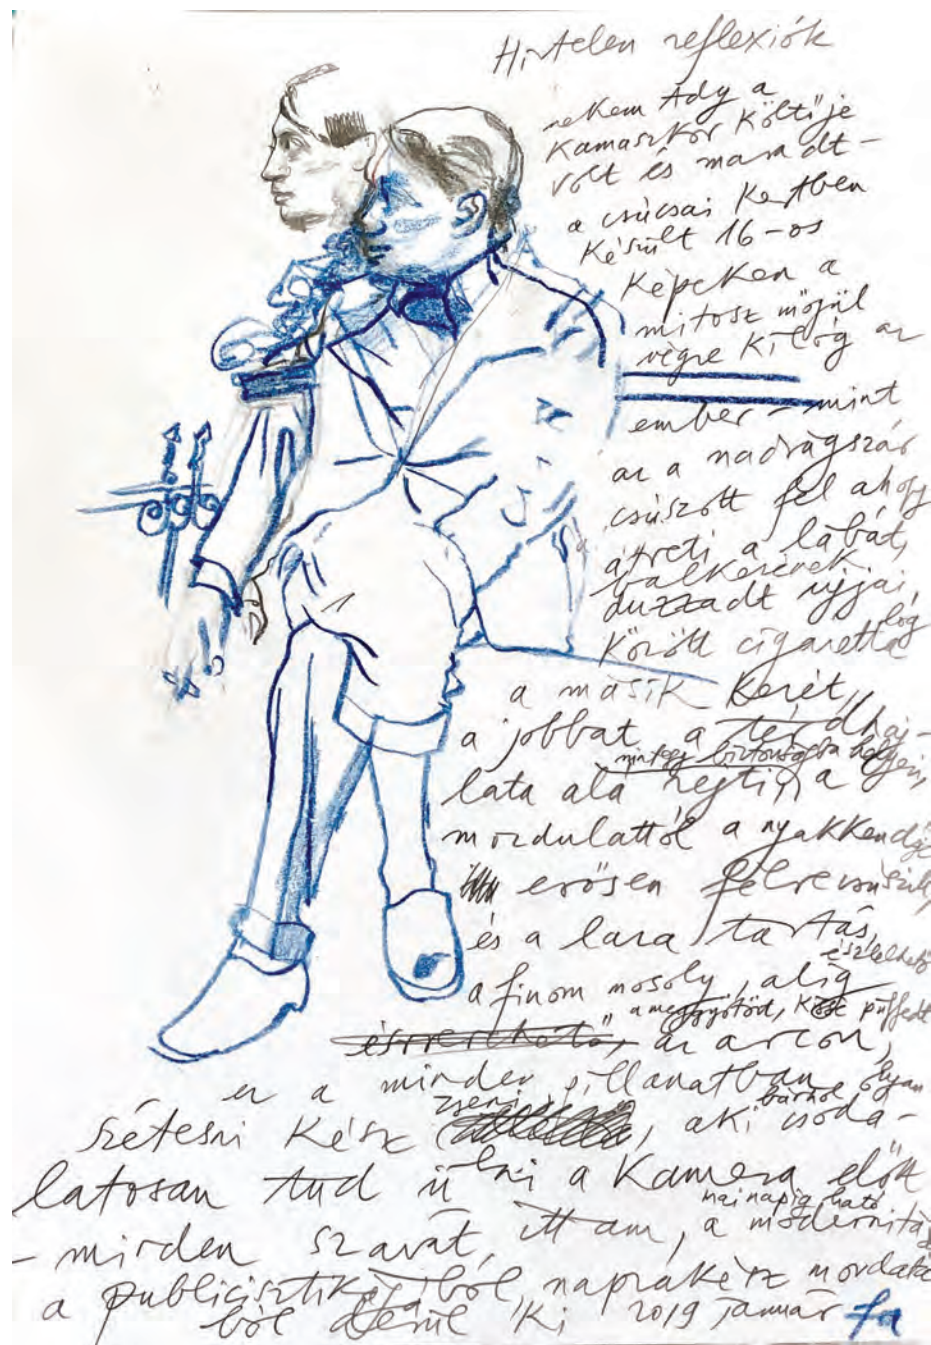 Hirtelen reflexiók
nekem Ady a
kamaszkor költője
volt és maradt –
a csúcsai kertben
készült 16-os
képeken a
mítosz mögül
végre kilóg az
ember – mint
az a nadrágszár
csúszott fel ahogy
átveti a lábát,
balkezének
duzzadt ujjai
között cigaretta lóg
a másik kezét,
a jobbat a térdhaj-
lata alá rejti, mintegy biztonságba helyezi, a
mozdulattól a nyakkendője
erősen félrecsúszik,
és a laza tartás,
a finom mosoly, alig észlelhető
a meggyötört, kissé puffedt
az arcon,
ez a minden pillanatban
szétesni kész zseni, aki bárhol olyan csodá-
latosan tud ülni a kamera előtt
– minden szavát, itt am, a máinapig ható modernitás
a publicisztikájából, naprakész mondatai
ból derül ki 2019 január fa